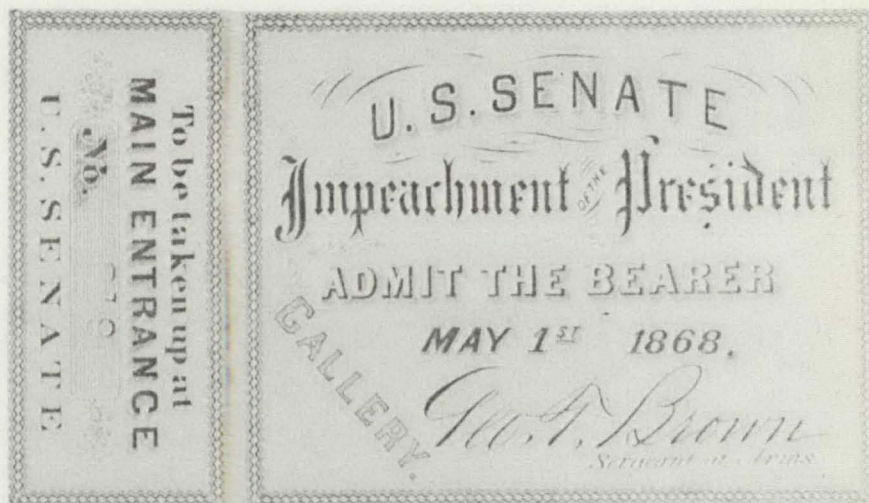 To be taken up at
MAIN ENTRANCE
No.
U.S. SENATE
U.S. SENATE
Impeachment OF THE President
ADMIT THE BEARER
MAY 1ST 1868.
GALLERY.
Geo. T. Brown
Sergeant at Arms